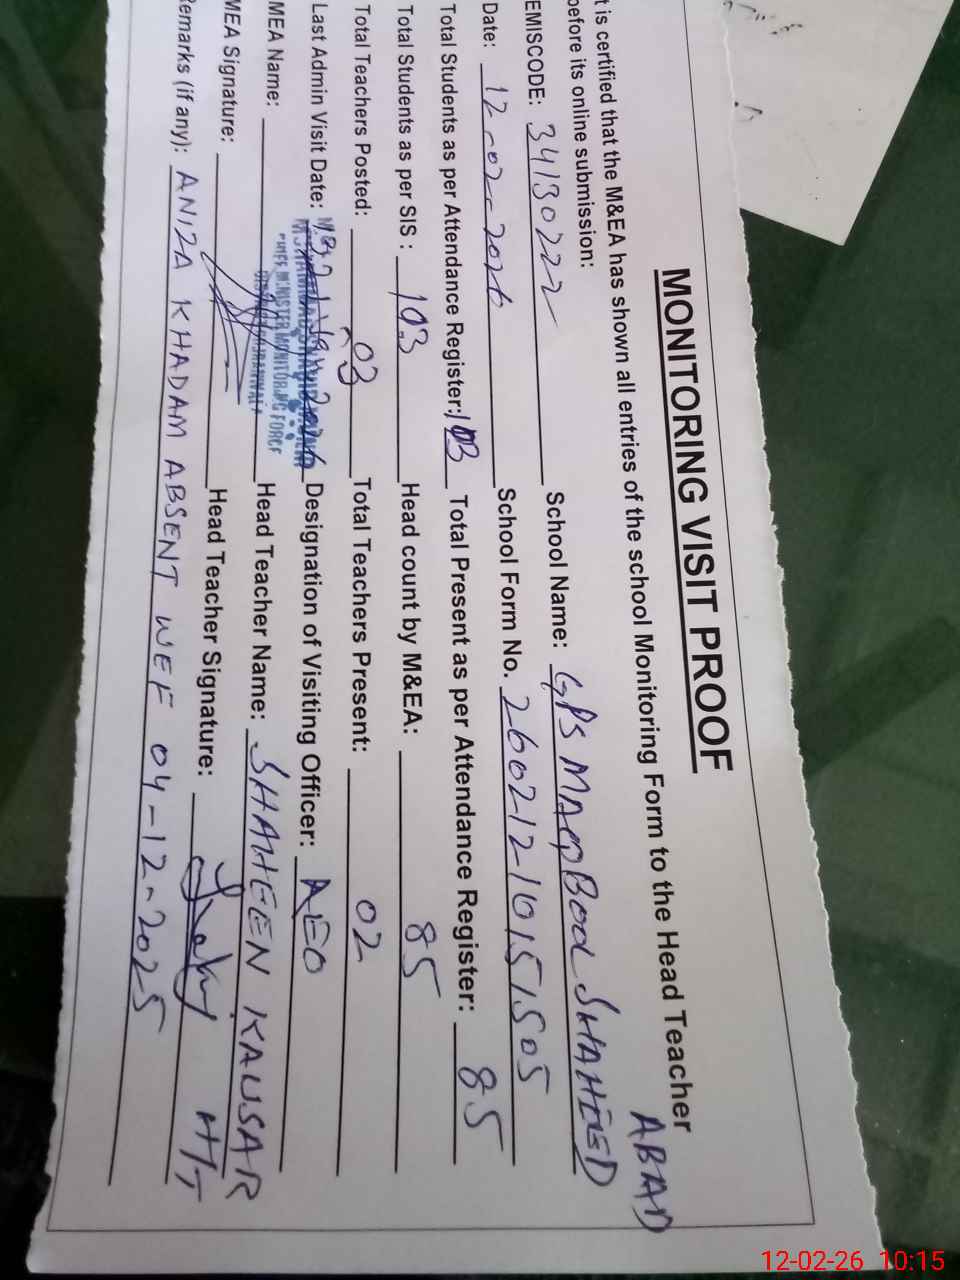 MONITORING VISIT PROOF
t is certified that the M&EA has shown all entries of the school Monitoring Form to the Head Teacher
before its online submission:
EMISCODE: 34130222 School Name: GPS MAQBOOL SHAHEED ABAD
Date: 12-02-2026 School Form No. 260212-10151505
Total Students as per Attendance Register: 103 Total Present as per Attendance Register: 85
Total Students as per SIS : 103 Head count by M&EA: 85
Total Teachers Posted: 03 Total Teachers Present: 02
Last Admin Visit Date: Designation of Visiting Officer: AEO
MEA Name: Head Teacher Name: SHAHEEN KAUSAR
CHIEF MINISTER MONITORING FORCE
MEA Signature: Head Teacher Signature: HT
Remarks (if any): ANIZA KHADAM ABSENT WEF 04-12-2025
12-02-26 10:15